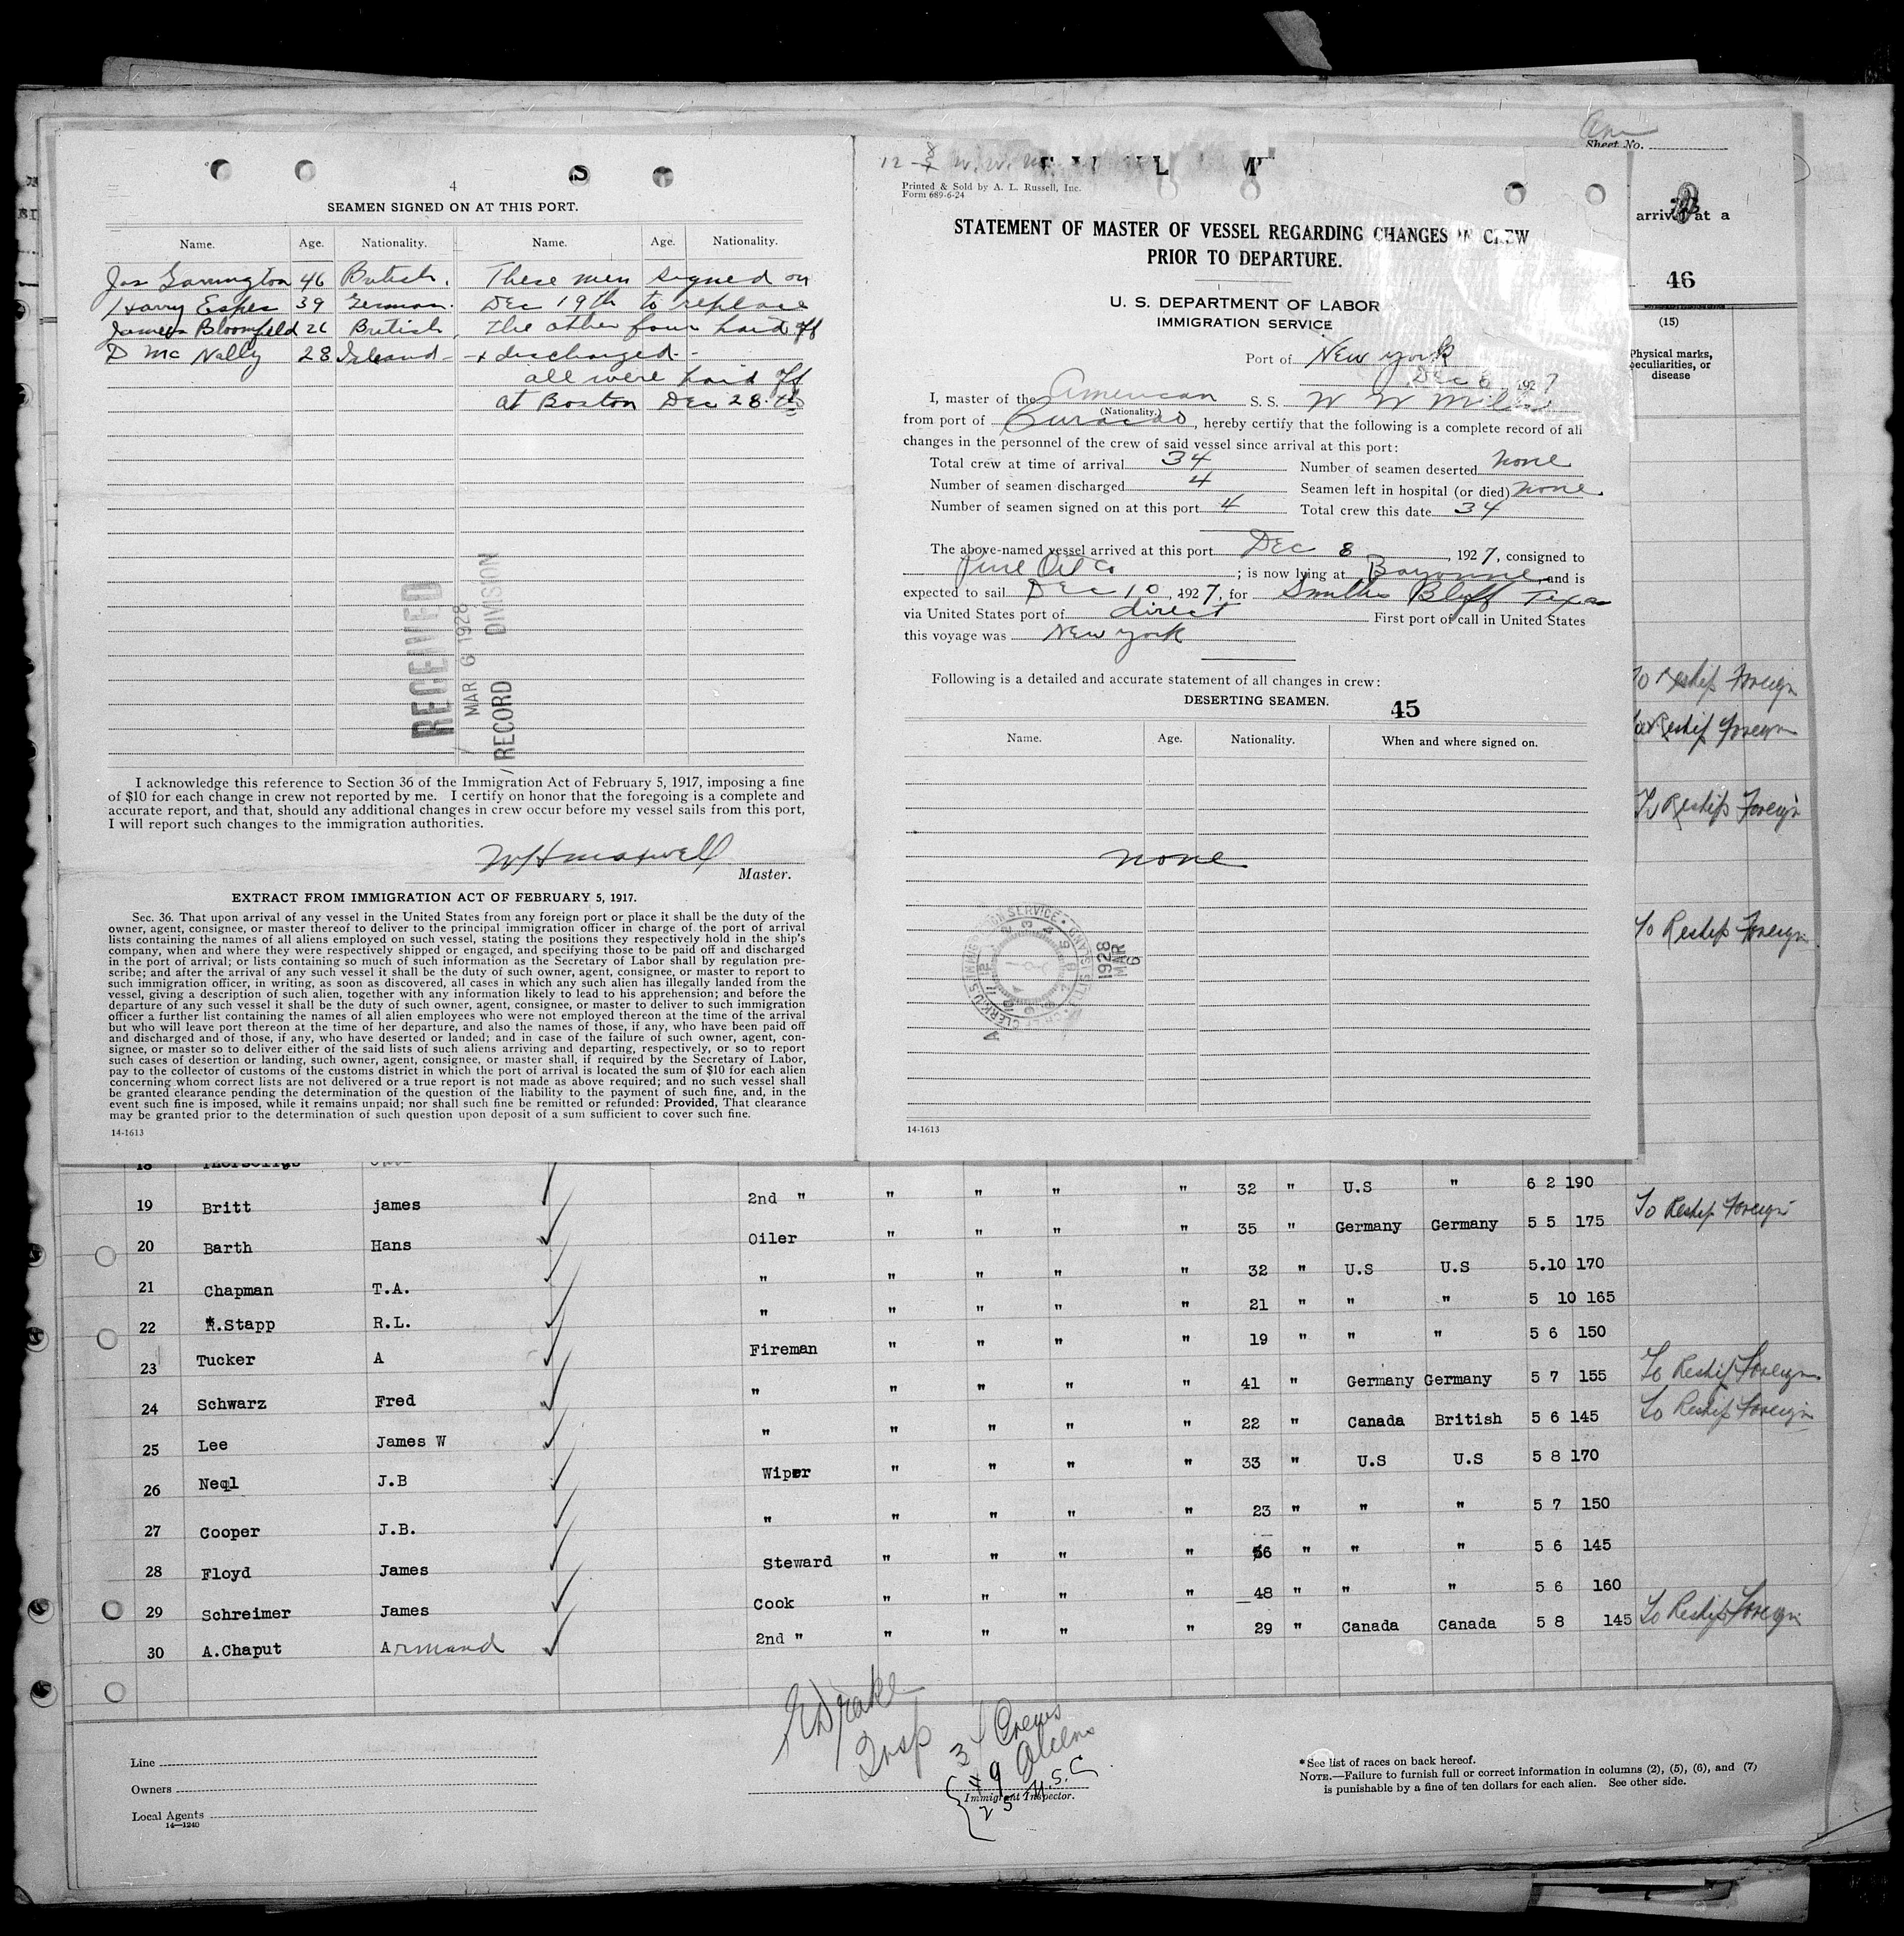 4
SEAMEN SIGNED ON AT THIS PORT.
Name. Age. Nationality. Name. Age. Nationality.
46 British. These men signed on
Harry Espes 39 German. Dec 19th to replace
James Bloomfeld 26 British, the other four paid off
D Mc Nally 28 + discharged.
all were paid off
at Boston Dec 28th
RECEIVED
MAR 6 1928
RECORD DIVISION
I acknowledge this reference to Section 36 of the Immigration Act of February 5, 1917, imposing a fine
of $10 for each change in crew not reported by me. I certify on honor that the foregoing is a complete and
accurate report, and that, should any additional changes in crew occur before my vessel sails from this port,
I will report such changes to the immigration authorities.
W H Maxwell
Master.
EXTRACT FROM IMMIGRATION ACT OF FEBRUARY 5, 1917.
Sec. 36. That upon arrival of any vessel in the United States from any foreign port or place it shall be the duty of the
owner, agent, consignee, or master thereof to deliver to the principal immigration officer in charge of the port of arrival
lists containing the names of all aliens employed on such vessel, stating the positions they respectively hold in the ship's
company, when and where they were respectively shipped or engaged, and specifying those to be paid off and discharged
in the port of arrival; or lists containing so much of such information as the Secretary of Labor shall by regulation pre-
scribe; and after the arrival of any such vessel it shall be the duty of such owner, agent, consignee, or master to report to
such immigration officer, in writing, as soon as discovered, all cases in which any such alien has illegally landed from the
vessel, giving a description of such alien, together with any information likely to lead to his apprehension; and before the
departure of any such vessel it shall be the duty of such owner, agent, consignee, or master to deliver to such immigration
officer a further list containing the names of all alien employees who were not employed thereon at the time of the arrival
but who will leave port thereon at the time of her departure, and also the names of those, if any, who have been paid off
and discharged and of those, if any, who have deserted or landed; and in case of the failure of such owner, agent, con-
signee, or master so to deliver either of the said lists of such aliens arriving and departing, respectively, or so to report
such cases of desertion or landing, such owner, agent, consignee, or master shall, if required by the Secretary of Labor,
pay to the collector of customs of the customs district in which the port of arrival is located the sum of $10 for each alien
concerning whom correct lists are not delivered or a true report is not made as above required; and no such vessel shall
be granted clearance pending the determination of the question of the liability to the payment of such fine, and, in the
event such fine is imposed, while it remains unpaid; nor shall such fine be remitted or refunded: Provided, That clearance
may be granted prior to the determination of such question upon deposit of a sum sufficient to cover such fine.
14-1613
Printed & Sold by A. L. Russell, Inc.
Form 689-6-24
STATEMENT OF MASTER OF VESSEL REGARDING CHANGES IN CREW
PRIOR TO DEPARTURE.
U. S. DEPARTMENT OF LABOR
IMMIGRATION SERVICE
Port of New York
Dec 8, 1927
I, master of the American S. S. W W Mills
(Nationality.)
from port of Curacao, hereby certify that the following is a complete record of all
changes in the personnel of the crew of said vessel since arrival at this port:
Total crew at time of arrival 34 Number of seamen deserted none
Number of seamen discharged 4 Seamen left in hospital (or died) none.
Number of seamen signed on at this port 4 Total crew this date 34
The above-named vessel arrived at this port Dec 8, 1927, consigned to
Pure Oil Co; is now lying at Bayonne, and is
expected to sail Dec 10, 1927, for Smiths Bluff Texas
via United States port of direct First port of call in United States
this voyage was New York
Following is a detailed and accurate statement of all changes in crew:
DESERTING SEAMEN. 45
Name. Age. Nationality. When and where signed on.
none
1928 MAR 6
14-1613
Sheet No.
arrival at a
46
(15)
Physical marks,
peculiarities, or
disease
To Reship Foreign
Reship Foreign
To Reship Foreign
To Reship Foreign
18
19 Britt james 2nd " " " " " 32 " U.S " 6 2 190
To Reship Foreign
20 Barth Hans Oiler " " " " 35 " Germany Germany 5 5 175
21 Chapman T.A. " " " " " 32 " U.S U.S 5.10 170
22 R.Stapp R.L. " " " " " 21 " " " 5 10 165
23 Tucker A Fireman " " " " 19 " " " 5 6 150
24 Schwarz Fred " " " " " 41 " Germany Germany 5 7 155 To Reship Foreign.
25 Lee James W " " " " " 22 " Canada British 5 6 145 To Reship Foreign
26 Neql J.B Wiper " " " " 33 " U.S U.S 5 8 170
27 Cooper J.B. " " " " " 23 " " " 5 7 150
28 Floyd James Steward " " " " 56 " " " 5 6 145
29 Schreimer James Cook " " " " 48 " " " 5 6 160
30 A.Chaput Armand 2nd " " " " " 29 " Canada Canada 5 8 145 To Reship Foreign
Drake
Insp
34 Crews
9 Aliens
25 U.S.C
Immigrant Inspector.
Line
Owners
Local Agents
14—1240
*See list of races on back hereof.
NOTE.—Failure to furnish full or correct information in columns (2), (5), (6), and (7)
is punishable by a fine of ten dollars for each alien. See other side.